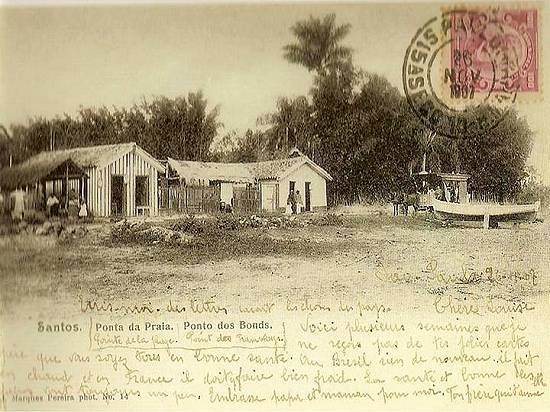 26
NOV
1907
Ecris-moi des lettres
du pays.
Chère Louise
Santos. Ponta da Praia. Ponto dos Bonds.
Pointe de la plage. Point des Tramways.
Voici plusieurs semaines que je
ne reçois pas de tes jolies cartes
que vous soyez tous en bonne santé. Au Brésil rien de nouveau. il fait
chaud et en France il doit y faire bien froid. La santé est bonne
toujours un peu. Embrasse papa et maman pour moi. Ton frère qui t'aime
Marques Pereira phot. No. 14